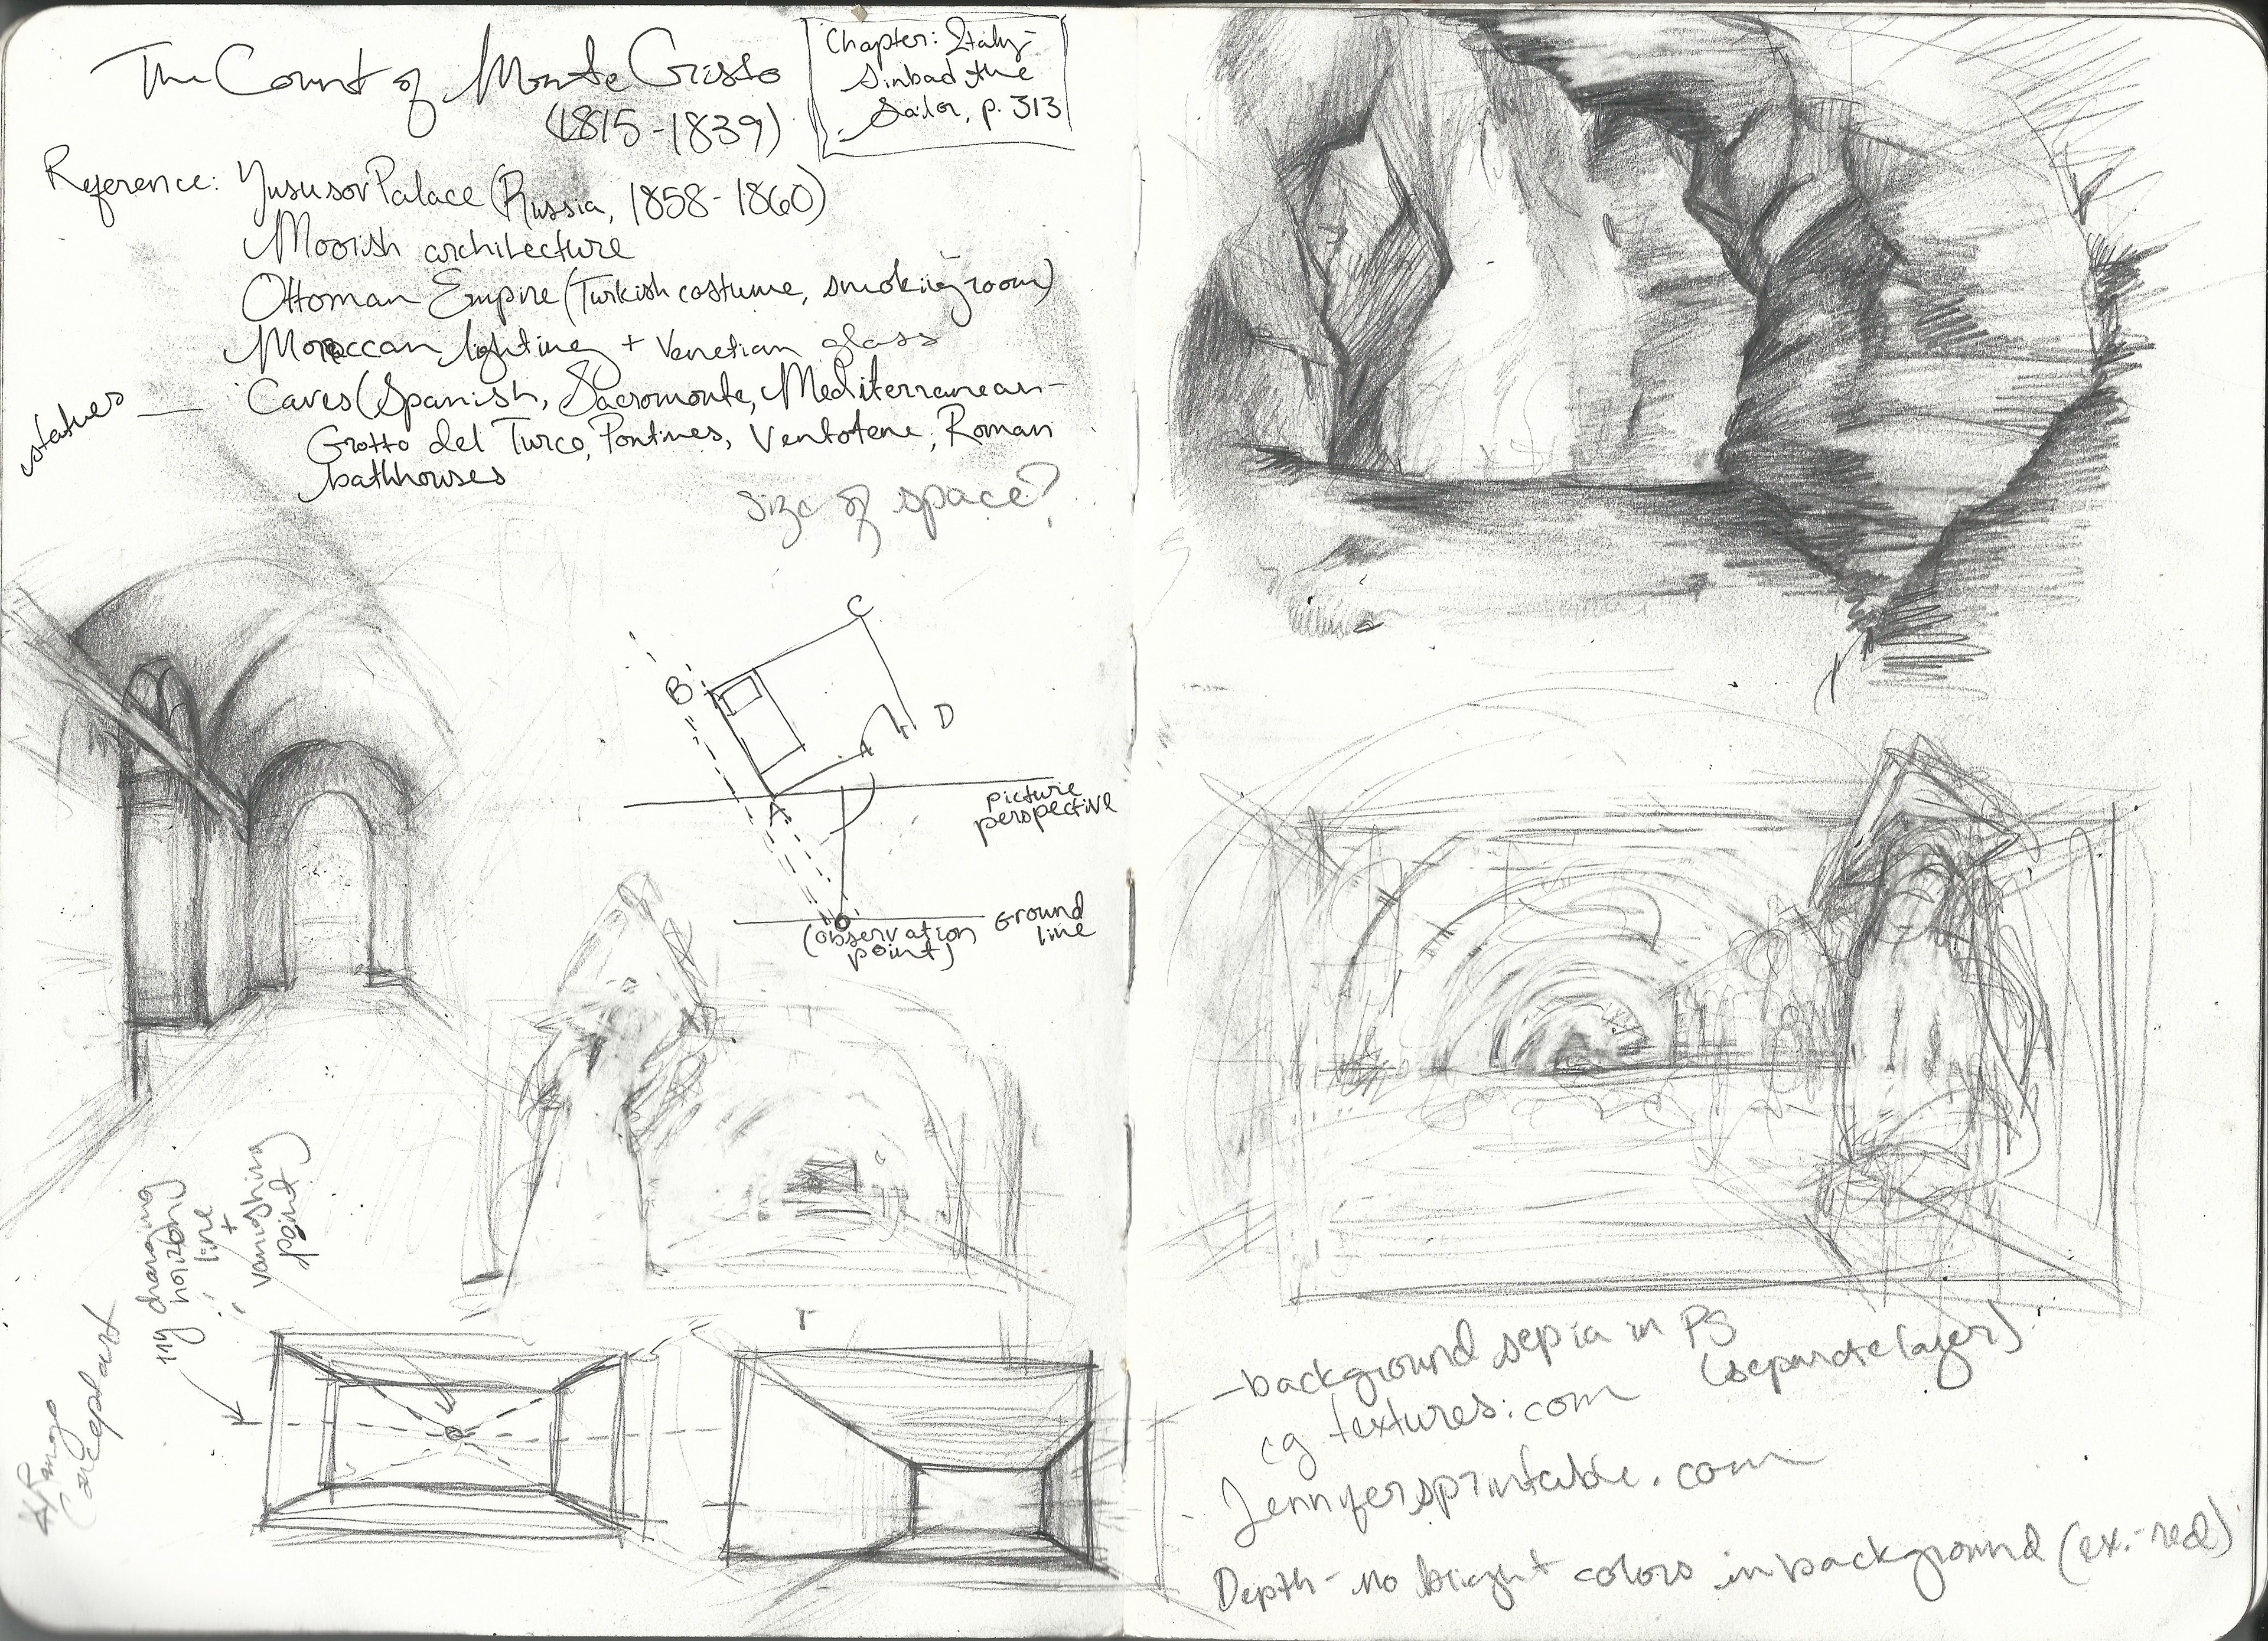 The Count of Monte Cristo
(1815-1839)
Chapter: Italy-
Sinbad the
Sailor, p. 313
Reference: Yususov Palace (Russia, 1858-1860)
Moorish architecture
Ottoman Empire (Turkish costume, smoking room)
Moroccan lighting + Venetian glass
statues — Caves (Spanish, Sacromonte, Mediterranean-
Grotto del Turco, Pontines, Ventotene, Roman
bathhouses
size of space?
C
B
D
A
picture
perspective
ground
line
(observation
point)
my changing
horizon
line
+
vanishing
point
conceptart
-background sepia in PS
(separate layer)
cg textures.com
Jennifersprintable.com
Depth- no bright colors in background (ex.-red)